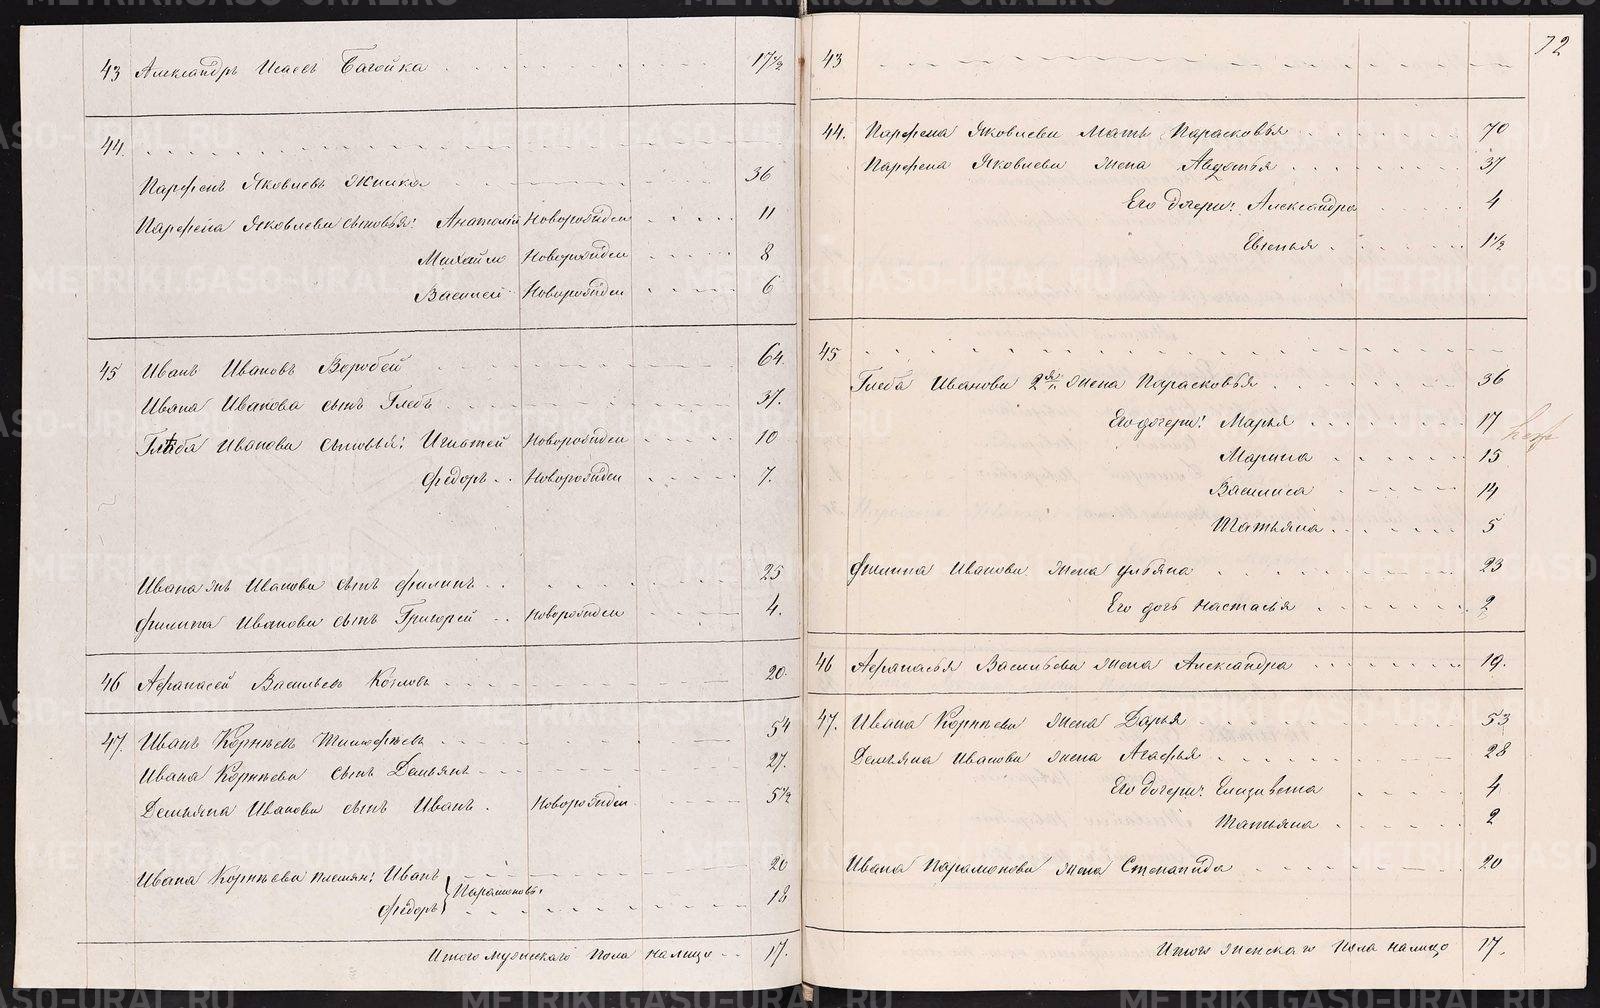 72
43 Александръ Исаевъ Багойка 17½
44.
Парфенъ Яковлевъ Жилка 36
Парфена Яковлева сыновья: Анатолій Новорожден 11
Михайло Новорожден 8
Василей Новорожден 6
45 Иванъ Ивановъ Воробей 64
Ивана Иванова сынъ Глебъ 37.
Глѣба Иванова сыновья: Игнатей Новорожден 10
Федоръ Новорожден 7.
Ивана жъ Иванова сынъ Филипъ 25
Филипа Иванова сынъ Григорей Новорожден 4.
46 Афанасей Васильевъ Козловъ 20.
47. Иванъ Корнѣевъ Тимофѣевъ 54
Ивана Корнѣева сынъ Демьянъ 27.
Демьяна Иванова сынъ Иванъ Новорожден 5½
Ивана Корнѣева племян: Иванъ 20
Федоръ } Парамоновы 18
Итого мужескаго пола налицо 17.
43
44. Парфена Яковлева мать Парасковья 70
Парфена Яковлева жена Авдотья 37
Его дочери: Александра 4
Евгенья 1½
45
Глеба Иванова 2я жена Парасковья 36
Его дочери: Марья 17
Марина 15
Василиса 14
Татьяна 5
Филипа Иванова жена Ульяна 23
Его дочь Настасья 2
46 Афанасья Васильева жена Александра 19.
47. Ивана Корнѣева жена Дарья 53
Демьяна Иванова жена Агафья 28
Его дочери: Елизавета 4
Татьяна 2
Ивана Парамонова жена Степанида 20
Итого женскаго пола налицо 17.
METRIKI.GASO-URAL.RU